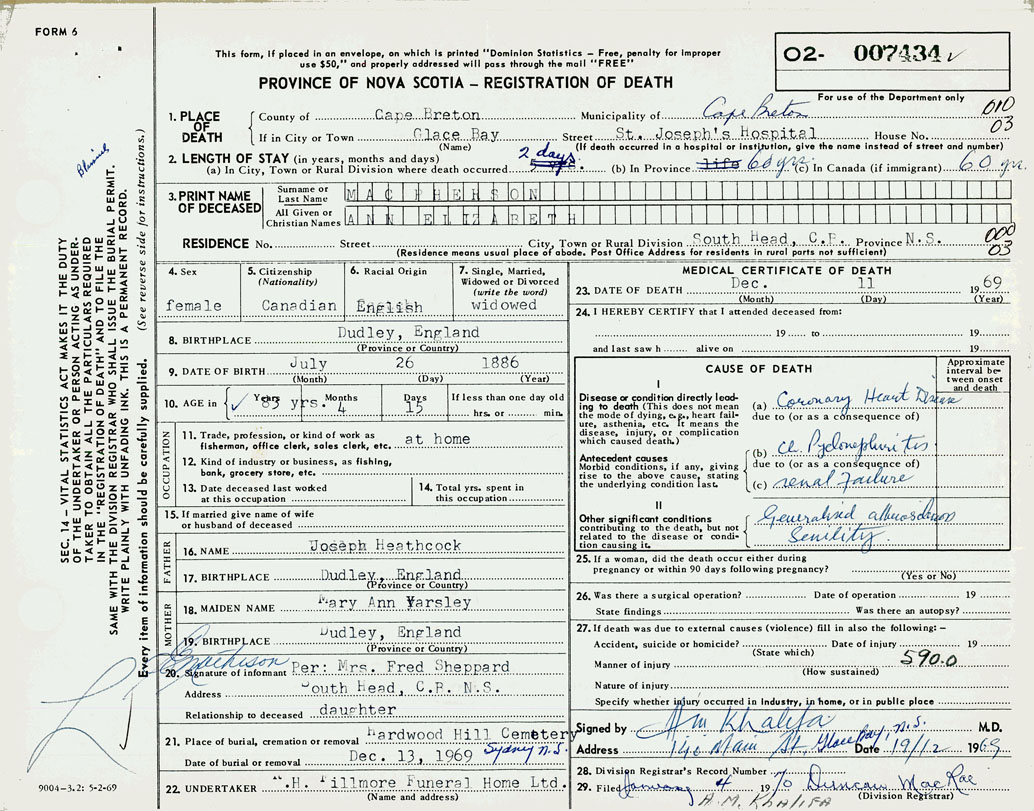 FORM 6
This form, if placed in an envelope, on which is printed "Dominion Statistics – Free, penalty for improper
use $50," and properly addressed will pass through the mail "FREE"
PROVINCE OF NOVA SCOTIA – REGISTRATION OF DEATH
02- 007434
For use of the Department only
010
03
1. PLACE OF DEATH
County of Cape Breton Municipality of Cape Breton
If in City or Town Glace Bay Street St. Joseph's Hospital House No.
(Name) (If death occurred in a hospital or institution, give the name instead of street and number)
2. LENGTH OF STAY (in years, months and days)
(a) In City, Town or Rural Division where death occurred 2 days (b) In Province life 60 yrs. (c) In Canada (if immigrant) 60 yrs.
3. PRINT NAME OF DECEASED
Surname or Last Name MAC PHERSON
All Given or Christian Names ANN ELIZABETH
RESIDENCE No. Street City, Town or Rural Division South Head, C.B. Province N.S.
(Residence means usual place of abode. Post Office Address for residents in rural parts not sufficient)
000
03
4. Sex
female
5. Citizenship
(Nationality)
Canadian
6. Racial Origin
English
7. Single, Married,
Widowed or Divorced
(write the word)
widowed
8. BIRTHPLACE Dudley, England
(Province or Country)
9. DATE OF BIRTH July 26 1886
(Month) (Day) (Year)
10. AGE in Years Months Days If less than one day old
83 yrs. 4 15 hrs. or min.
OCCUPATION
11. Trade, profession, or kind of work as
fisherman, office clerk, sales clerk, etc. at home
12. Kind of industry or business, as fishing,
bank, grocery store, etc.
13. Date deceased last worked
at this occupation
14. Total yrs. spent in
this occupation
15. If married give name of wife
or husband of deceased
FATHER
16. NAME Joseph Heathcock
17. BIRTHPLACE Dudley, England
(Province or Country)
MOTHER
18. MAIDEN NAME Mary Ann Yarsley
19. BIRTHPLACE Dudley, England
(Province or Country)
20. Signature of informant Per: Mrs. Fred Sheppard
Address South Head, C.B. N.S.
Relationship to deceased daughter
21. Place of burial, cremation or removal Hardwood Hill Cemetery
Sydney N.S.
Date of burial or removal Dec. 13, 1969
22. UNDERTAKER .H. Fillmore Funeral Home Ltd.
(Name and address)
MEDICAL CERTIFICATE OF DEATH
23. DATE OF DEATH Dec. 11 1969
(Month) (Day) (Year)
24. I HEREBY CERTIFY that I attended deceased from:
19 to 19
and last saw h alive on 19
CAUSE OF DEATH
Approximate
interval be-
tween onset
and death
I
Disease or condition directly lead-
ing to death (This does not mean
the mode of dying, e.g., heart fail-
ure, asthenia, etc. It means the
disease, injury, or complication
which caused death.)
(a) Coronary Heart Disease
due to (or as a consequence of)
Antecedent causes
Morbid conditions, if any, giving
rise to the above cause, stating
the underlying condition last.
(b) Ch. Pyelonephritis
due to (or as a consequence of)
(c) renal Failure
II
Other significant conditions
contributing to the death, but not
related to the disease or condi-
tion causing it.
Generalised
Senility.
25. If a woman, did the death occur either during
pregnancy or within 90 days following pregnancy?
(Yes or No)
26. Was there a surgical operation? Date of operation 19
State findings Was there an autopsy?
27. If death was due to external causes (violence) fill in also the following: –
Accident, suicide or homicide? Date of injury 19
(State which)
590.0
Manner of injury
(How sustained)
Nature of injury
Specify whether injury occurred in industry, in home, or in public place
Signed by Khalifa M.D.
Address 140 Main St. Glace Bay, N.S. Date 19/12 1969
28. Division Registrar's Record Number 7
29. Filed January 4 1970 Duncan MacRae
(Division Registrar)
A.M. KHALIFA
SEC. 14 – VITAL STATISTICS ACT MAKES IT THE DUTY
OF THE UNDERTAKER OR PERSON ACTING AS UNDER-
TAKER TO OBTAIN ALL THE PARTICULARS REQUIRED
IN THE "REGISTRATION OF DEATH" AND TO FILE THE
SAME WITH THE DIVISION REGISTRAR WHO SHALL ISSUE THE BURIAL PERMIT.
WRITE PLAINLY WITH UNFADING INK. THIS IS A PERMANENT RECORD.
Every item of information should be carefully supplied. (See reverse side for instructions.)
9004-3.2: 5-2-69